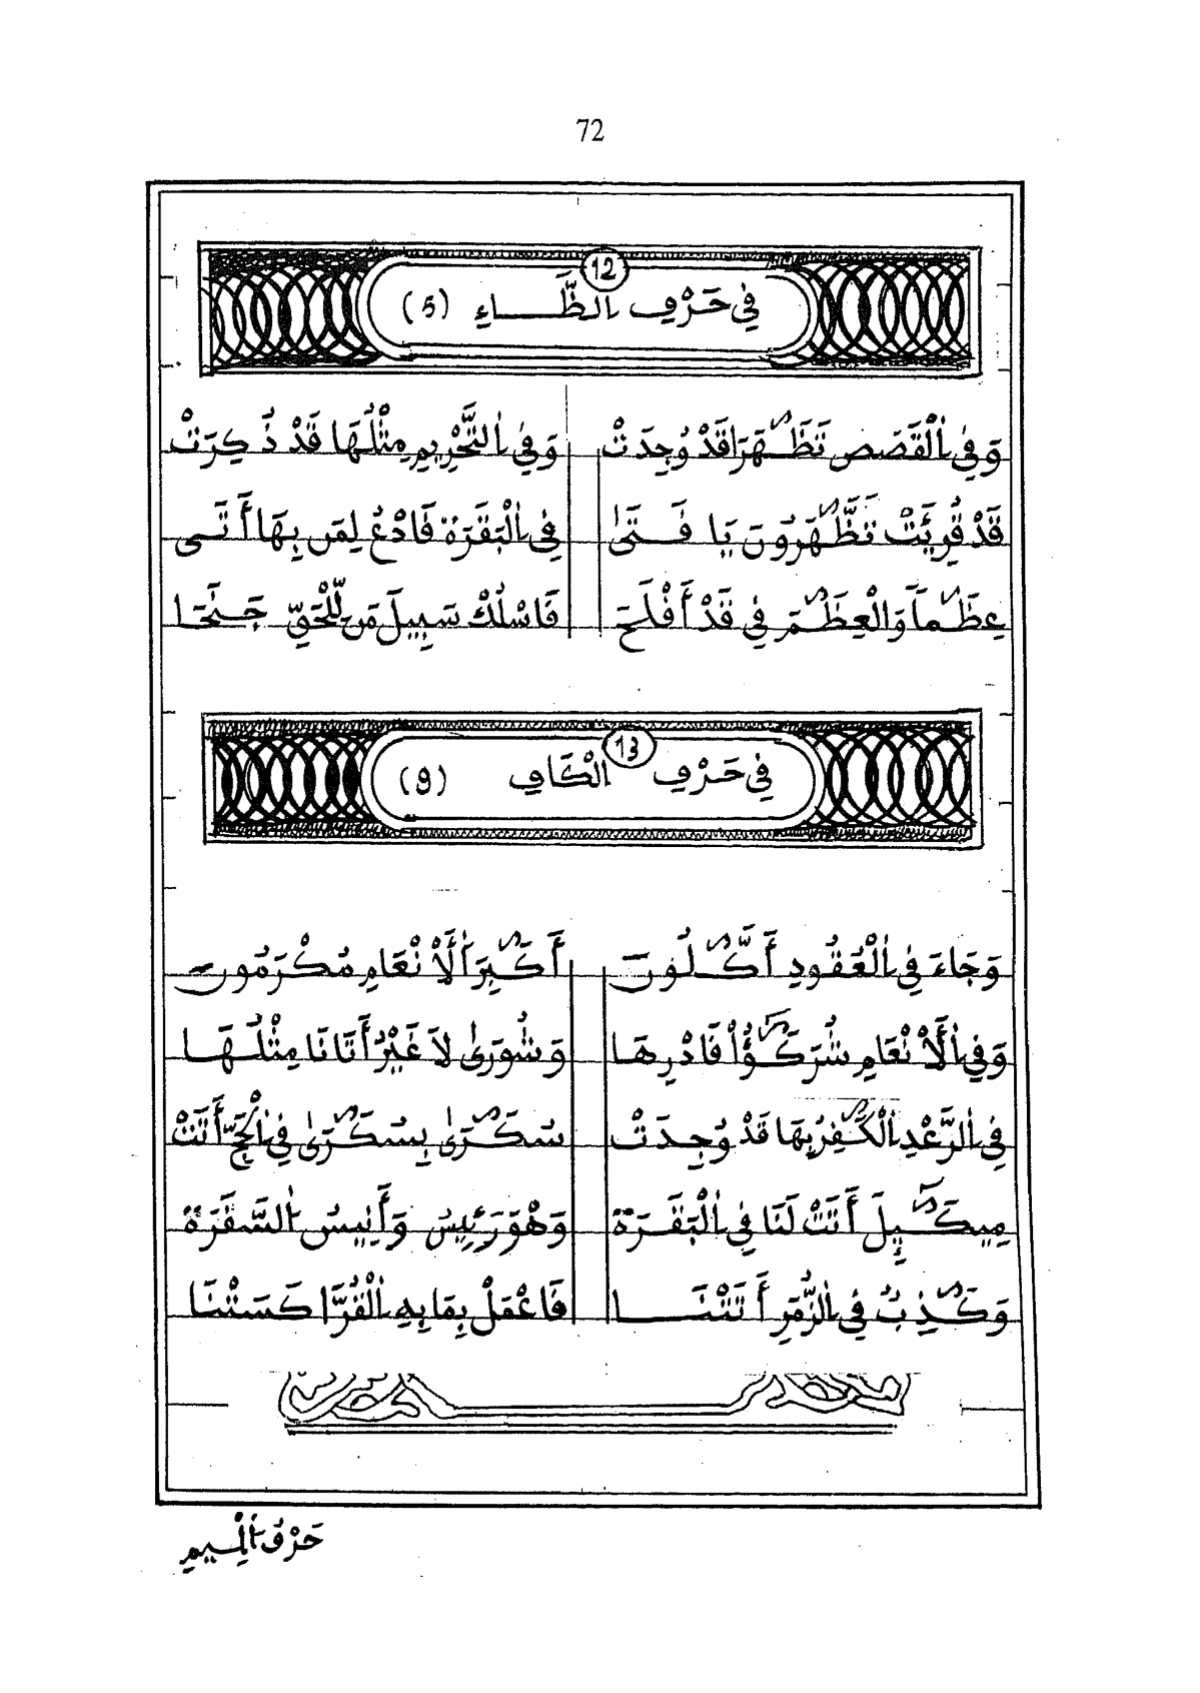 72
12
فِي حَرْفِ اِلظَّاءِ (5)
وَفِي اِلْقَصَصِ تَظَّهَرَا قَدْ وُجِدَتْ وَفِي اِلتَّحْرِيمِ مِثْلُهَا قَدْ ذُكِرَتْ
قَدْ قُرِئَتْ تَظَّهَرُونَ يَا فَتَىٰ فِي اِلْبَقَرَة فَادْعُ لِمَن بِهَا أَتَى
عِظَماً وَالْعِظَمَ فِي قَدْ أَفْلَحَ فَاسْلُكْ سَبِيلَ مَن لِّلْحَقِّ جَنَحَا
13
فِي حَرْفِ الْكَافِ (9)
وَجَاءَ فِي اِلْعُقُودِ أَكَّلُونَ أَكَبِرَ اَلَانْعَامِ مُكْرَمُونَ
وَفِي اِلَانْعَامِ شُرَكَؤُاْ فَادْرِهَا وَشُورَىٰ لَا غَيْرُ أَتَانَا مِثْلُهَا
فِي اِلرَّعْدِ اِلْكَفِرُ بِهَا قَدْ وُجِدَتْ سُكَرَىٰ بِسُكَرَىٰ فِي اِلْحَجِّ أَتَتْ
مِيكَـٰٓئِيلَ أَتَتْ لَنَا فِي اِلْبَقَرَة وَهْوَ رَئِيسُ وَأَنِيسُ اُلسَّفَرَة
وَكَذِبٌ فِي اِلزُّمَرِ أَتَتْنَا فَاعْمَلْ بِمَا بِهِ اِلْقُرَّا كَسَتْنَا
حَرْفُ اُلْمِيمِ